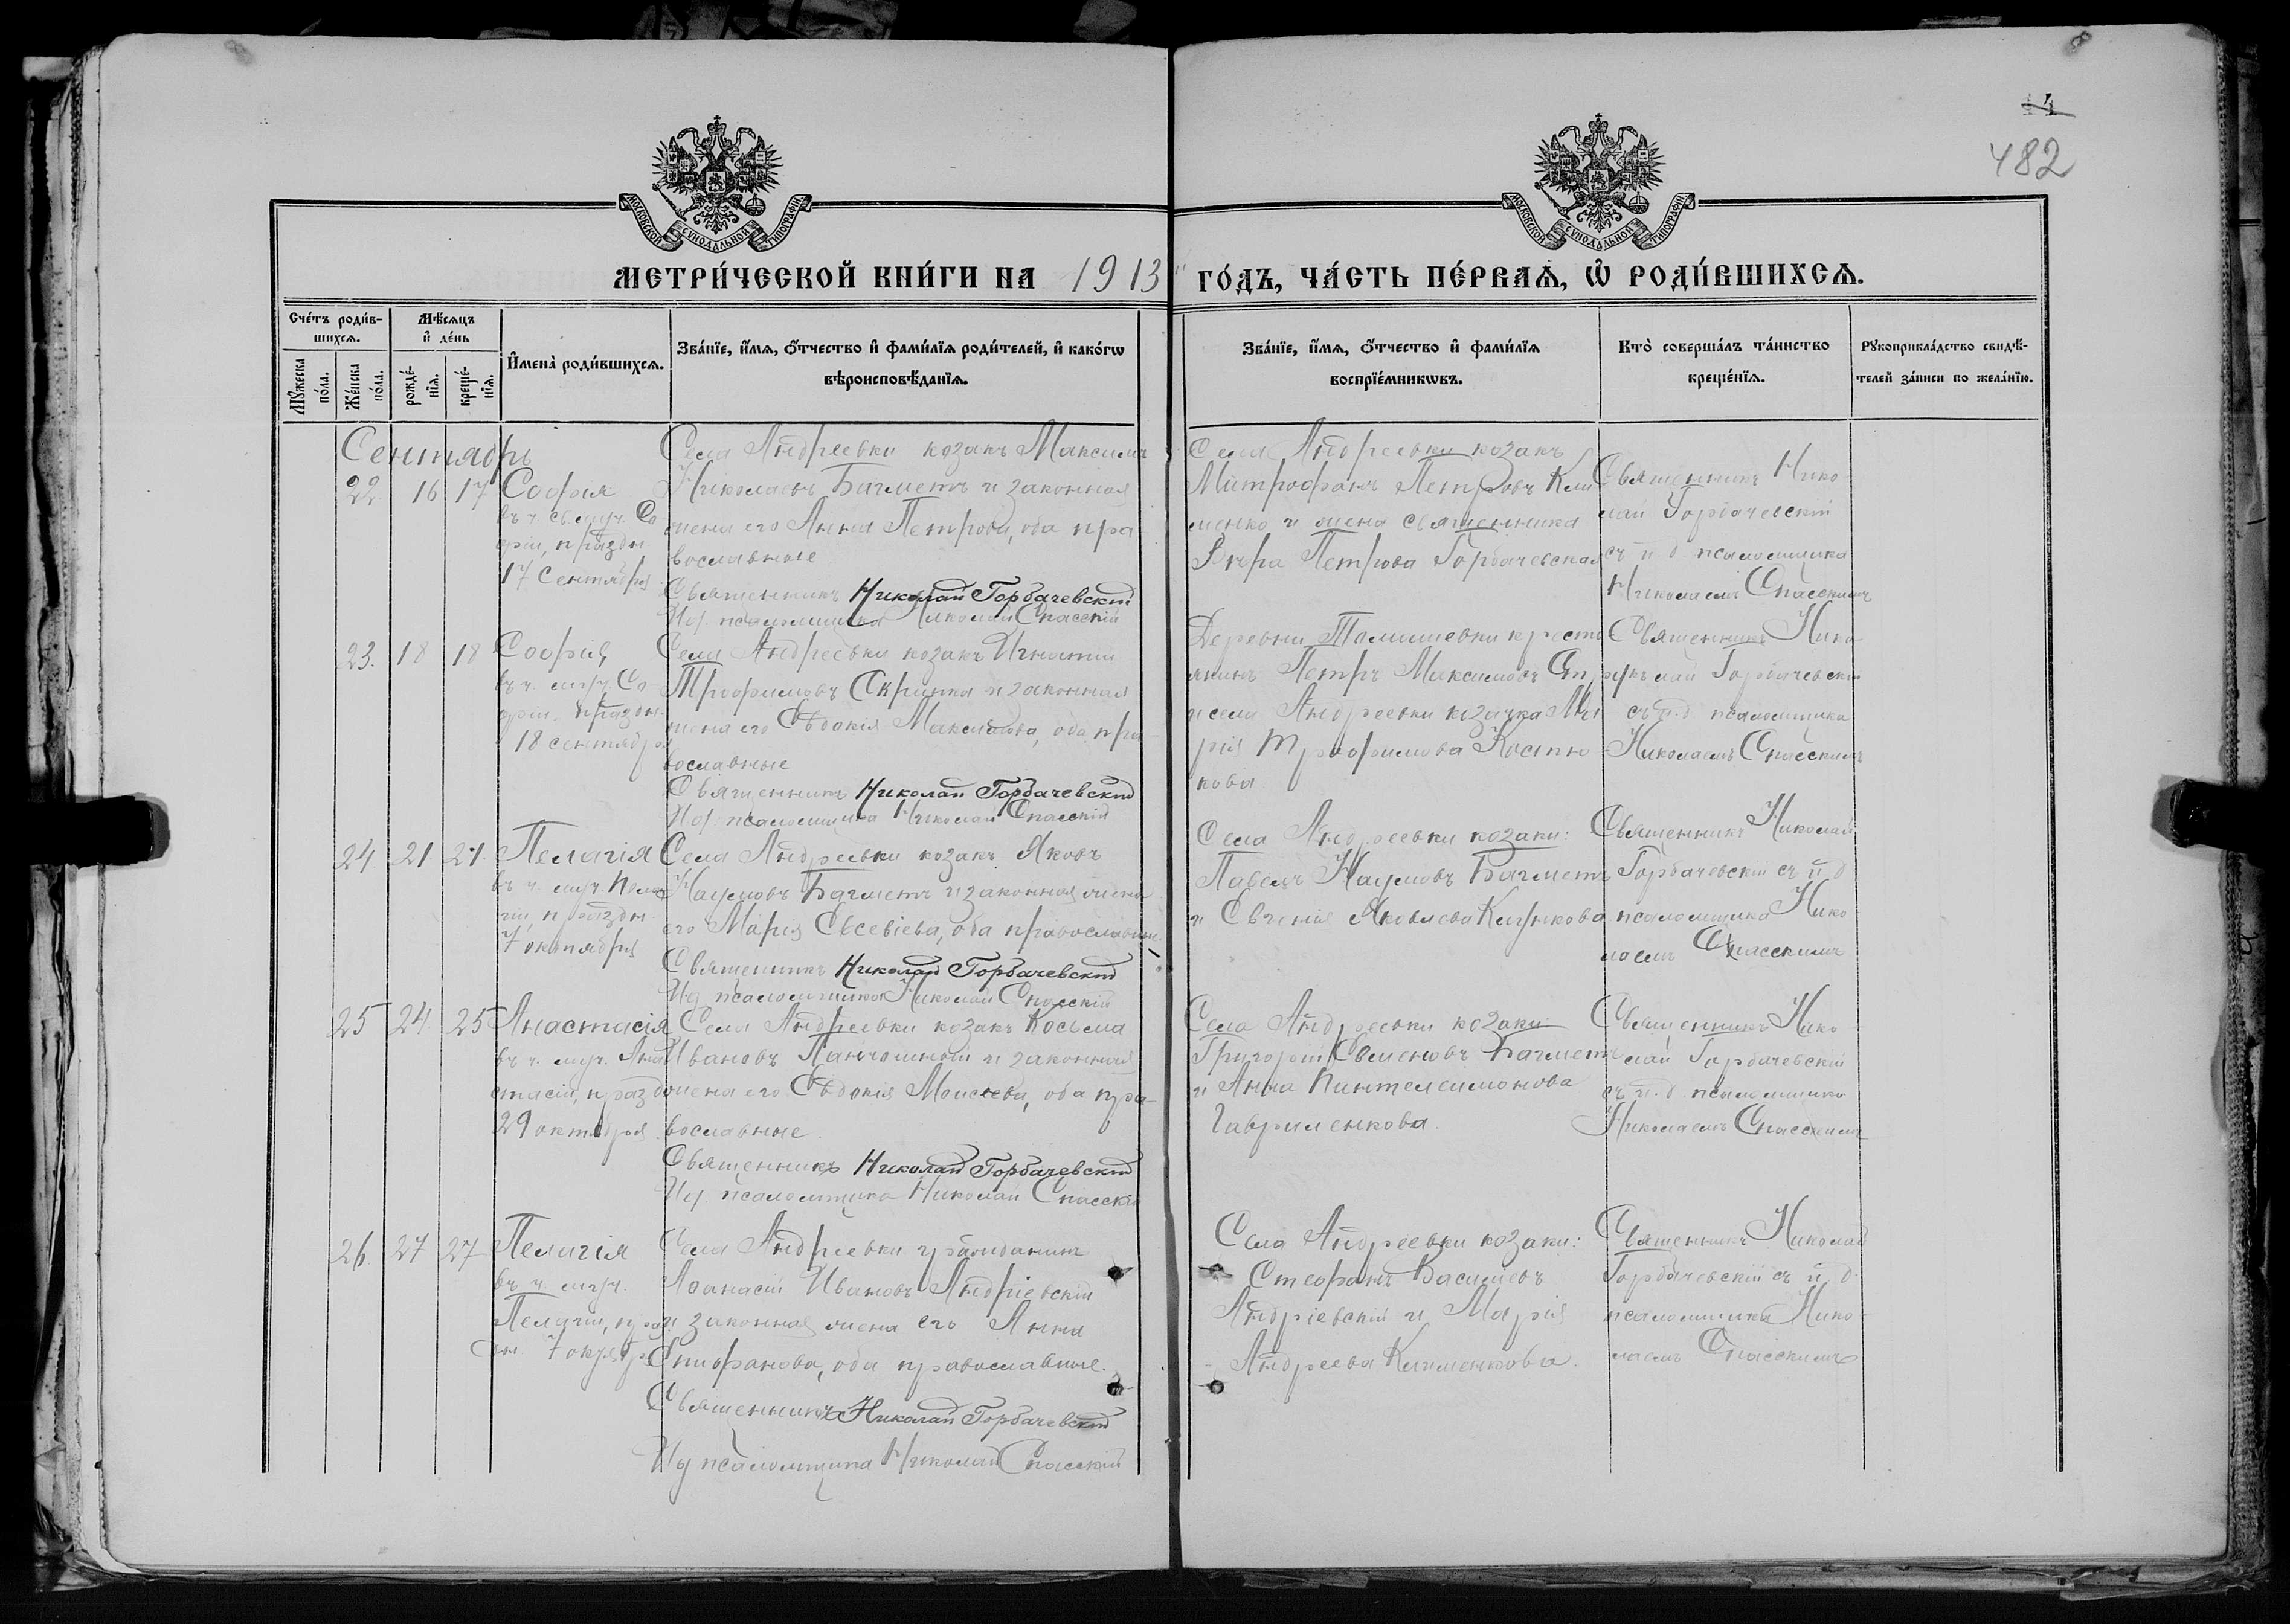 14
482
МОСКОВСКОЙ СѴНОДАЛЬНОЙ ТИПОГРАФІИ
МОСКОВСКОЙ СѴНОДАЛЬНОЙ ТИПОГРАФІИ
МЕТРИ́ЧЕСКОЙ КНИ́ГИ НА 1913 ГО́ДЪ, ЧА́СТЬ ПЕ́РВАѦ, Ѽ РОДИ́ВШИХСѦ.
Сче́тъ роди́в-
шихсѧ.
Мѣ́сѧцъ
и҆ де́нь
Мꙋ́жеска
по́ла.
Же́нска
по́ла.
рожде́-
нїѧ.
креще́-
нїѧ.
И҆мена̀ роди́вшихсѧ.
Зва́нїе, и҆́мѧ, ѻ҆́тчество и҆ фами́лїѧ роди́телей, и҆ како́гѡ
вѣроисповѣ́данїѧ.
Зва́нїе, и҆́мѧ, ѻ҆́тчество и҆ фами́лїѧ
воспрїе́мникѡвъ.
Кто̀ соверша́лъ та́инство
креще́нїѧ.
Рꙋкоприкла́дство свидѣ́-
телей за́писи по жела́нїю.
Сентябрь
22 16 17 София
въ ч. св. муч. Со
фіи, праздн
17 Сентября
Села Андреевки козакъ Максимъ
Николаевъ Багметъ и законная
жена его Анна Петрова, оба пра
вославные
Священникъ Николай Горбачевскій
Ид. псаломщика Николай Спасскій
Села Андреевки козакъ
Митрофанъ Петровъ Кли
менко и жена священника
Вѣра Петрова Горбачевская
Священникъ Нико
лай Горбачевскій
съ и. д. псаломщика
Николаемъ Спасскимъ
23. 18 18 Софія
въ ч. муч. Со
фіи, праздн.
18 сентября
Села Андреевки козакъ Игнатій
Трофимовъ Скрипка и законная
жена его Евдокія Максимова, оба пра-
вославные
Священникъ Николай Горбачевскій
Ид. псаломщика Николай Спасскій
Деревни крестья
янинъ Петръ Максимовъ
и села Андреевки козачка Ма
рія Трофимова Костю
кова
Священникъ Нико-
лай Горбачевскій
съ и. д. псаломщика
Николаемъ Спасскимъ
24 21 21 Пелагія
въ ч. муч. Пела
гіи, праздн.
7 октября
Села Андреевки козакъ Яковъ
Наумовъ Багметъ и законная жена
его Марія Евсевіева, оба православные.
Священникъ Николай Горбачевскій
Ид. псаломщика Николай Спасскій
Села Андреевки козаки:
Павелъ Наумовъ Багметъ
и Евгенія Яковлева
Священникъ Николай
Горбачевскій съ и. д
псаломщика Нико
лаемъ Спасскимъ
25 24 25 Анастасія
въ ч. муч. Ана
стасіи, праздн
29 октября
Села Андреевки козакъ Косьма
Ивановъ и законная
жена его Евдокія Моисеева, оба пра-
вославные.
Священникъ Николай Горбачевскій
Ид. псаломщика Николай Спасскій
Села Андреевки козаки:
Григорій Семеновъ Багметъ
и Анна Пантелеимонова
Гавриленкова.
Священникъ Нико
лай Горбачевскій
съ и. д. псаломщика
Николаемъ Спасскимъ
26. 27 27 Пелагія
въ ч. муч.
Пелагіи, праз
дн. 7 октября
Села Андреевки гражданинъ
Аѳанасій Ивановъ Андріевскій
и законная жена его Анна
Епифанова, оба православные.
Священникъ Николай Горбачевскій
Ид псаломщика Николай Спасскій
Села Андреевки козаки:
Стефанъ Василіевъ
Андріевскій и Марія
Андреева Клименкова.
Священникъ Николай
Горбачевскій съ и. д
псаломщика Нико-
лаемъ Спасскимъ